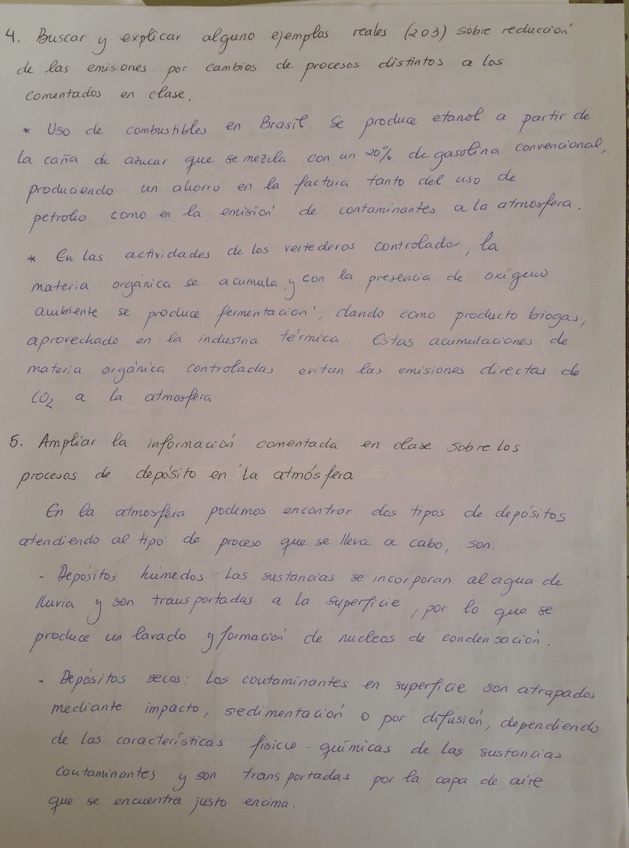 4. Buscar y explicar alguno ejemplos reales (2 o 3) sobre reducción
de las emisiones por cambios de procesos distintos a los
comentados en clase.
* Uso de combustibles en Brasil. Se produce etanol a partir de
la caña de azucar que se mezcla con un 20% de gasolina convencional,
produciendo un ahorro en la factura tanto del uso de
petroleo como en la emisión de contaminantes a la atmosfera.
* En las actividades de los vertederos controlados, la
materia orgánica se acumula, y con la presencia de oxígeno
ambiente se produce fermentación, dando como producto biogas,
aprovechado en la industria térmica. Estas acumulaciones de
materia orgánica controladas evitan las emisiones directas de
CO2 a la atmosfera
5. Ampliar la información comentada en clase sobre los
procesos de depósito en la atmósfera
En la atmosfera podemos encontrar dos tipos de depósitos
atendiendo al tipo de proceso que se lleva a cabo, son:
- Depósitos húmedos: Las sustancias se incorporan al agua de
lluvia y son transportadas a la superficie, por lo que se
produce un lavado y formación de nucleos de condensación.
- Depósitos secos: Los contaminantes en superficie son atrapados
mediante impacto, sedimentación o por difusión, dependiendo
de las características físico-químicas de las sustancias
contaminantes y son transportadas por la capa de aire
que se encuentra justo encima.